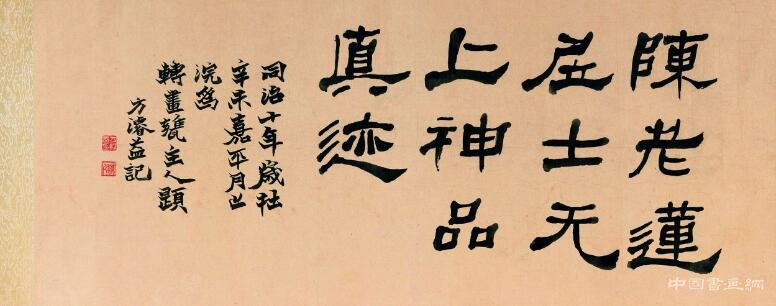 陳老蓮
居士无
上神品
真迹
同治十年歲在
辛未嘉平月上
浣為
轉畫主人題
方濬益記
中国書画網